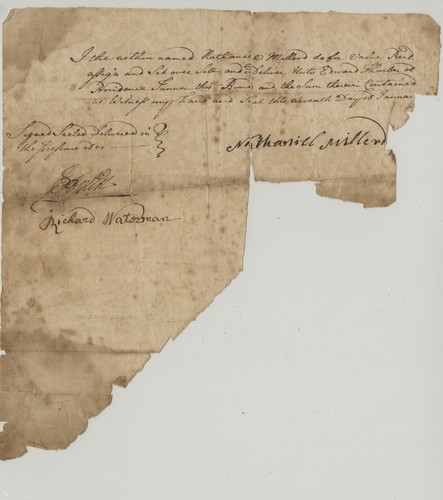 I the within named Nathaniel Millerd do for Value Recd
assign and Set over Sell and Deliver Unto Edward Thurber of
Providence Tanner this Bond and the Sum therein Contained
as Witness my hand and Seal this eleventh Day of Januar
Signed Sealed Delivered in
the presence of us
Nathaniell Millerd
Richard Waterman